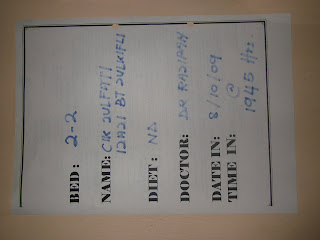 BED: 2-2
NAME: CIK ZULFITTI
IZAZI BT ZULKIFLI
DIET: ND.
DOCTOR: DR
DATE IN: 8/10/09
@
TIME IN: 1945 Hrs.